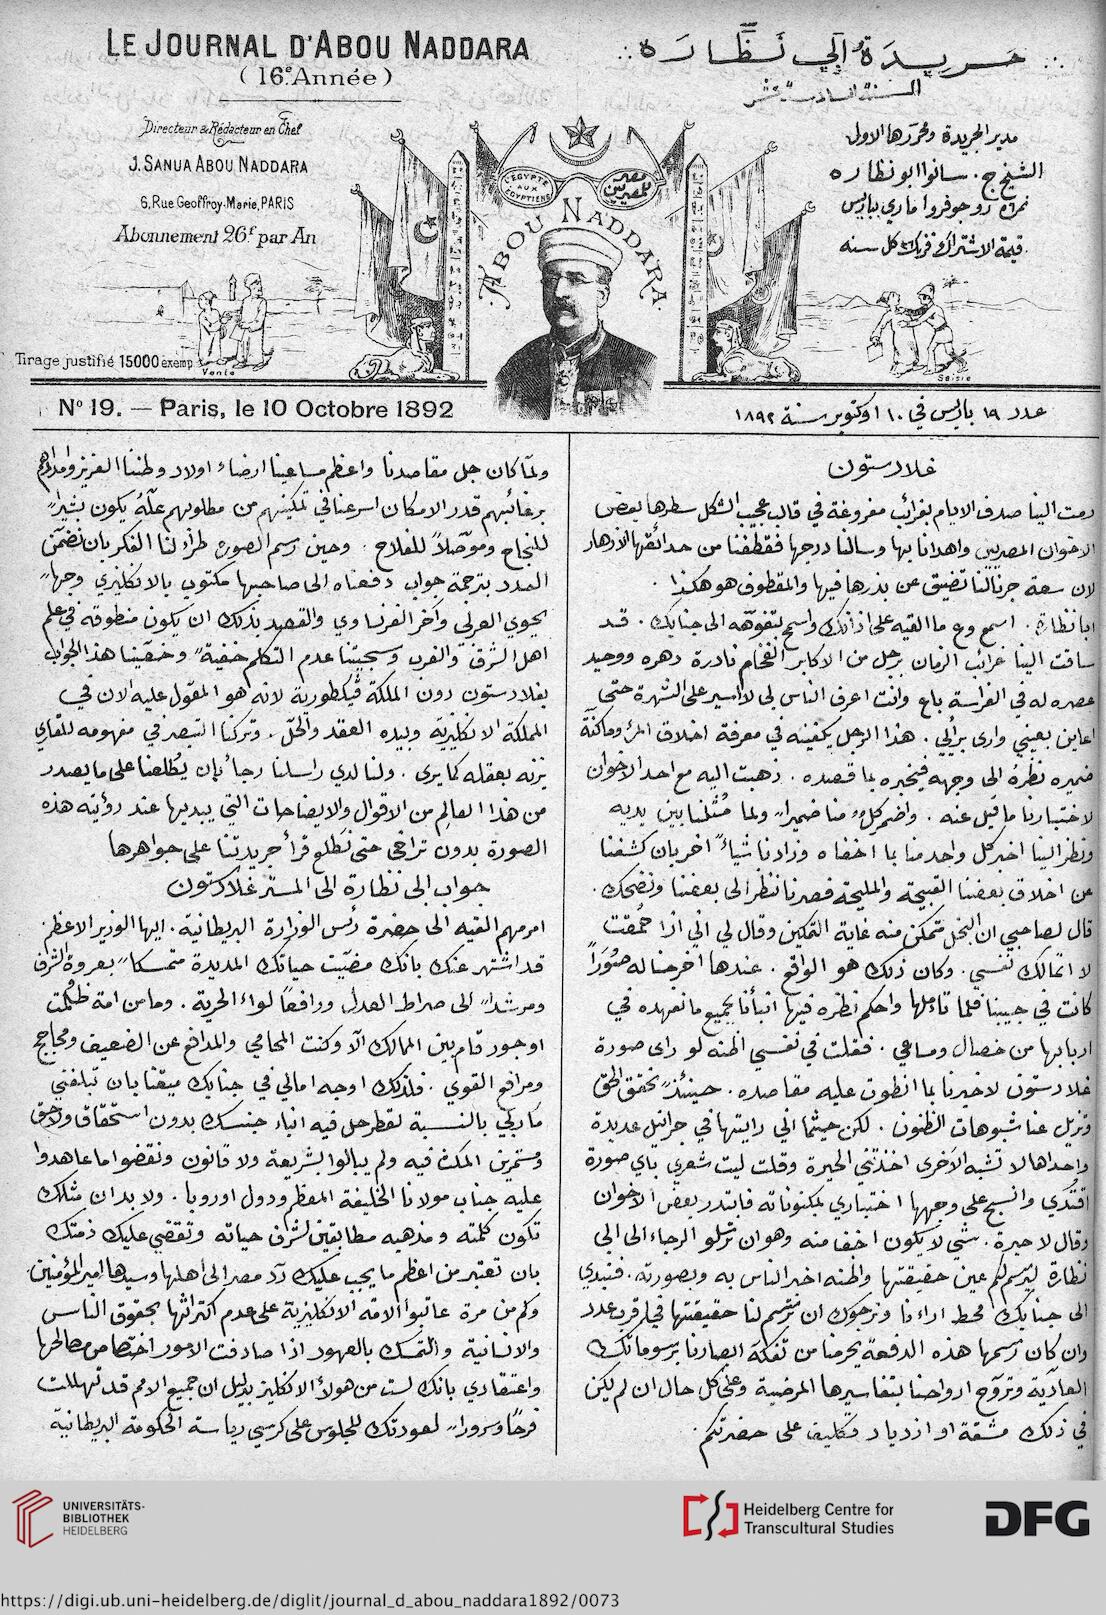 LE JOURNAL D'ABOU NADDARA
(16e Année)
Directeur & Rédacteur en Chef
J. SANUA ABOU NADDARA
6, Rue Geoffroy-Marie, PARIS
Abonnement 26f par An
Tirage justifié 15000 exemp
Vente
L'EGYPTE
AUX
EGYPTIENS
مصر
للمصريين
ABOU NADDARA.
جريدة ابي نظاره
السنة السادسة عشر
مدير الجريدة ومحررها الاولى
الشيخ ج. سانوا ابو نظاره
نمره ٦ رو جوفروا ماري بباريس
قيمة الاشتراك فرنك ٢٦ كل سنه
Saisie
Nº 19. — Paris, le 10 Octobre 1892
عدد ١٩ باريس في ١٠ اوكتوبر سنة ١٨٩٢
غلادستون
رمت الينا صدف الايام بغرائب مفروغة في قالب عجيب الشكل سطرها بعض
الاخوان المصريين واهدانا بها وسالنا درجها فقطفنا من حدائقها الازهار
لان سعة جرنالنا تضيق عن بذرها فيها والمقطوف هو هكذا .
ابا نظارة . اسمع وع ما القيه على اذانك واسمح بتفوهه الى جنابك . قد
ساقت الينا غرائب الزمان برجل من الاكابر الفخام نادرة دهره ووحيد
عصره له في الفراسة باع وانت اعرف الناس بي لا اسير على الشهرة حتى
اعاين بعيني وارى برأيي . هذا الرجل يكفينه في معرفة اخلاق المرء وما كنّة
ضميره نظرة الى وجهه فيخبره بما قصده . ذهبت اليه مع احد الاخوان
لاختبارنا ما قيل عنه . واضمر كل منا ضميراً ولما مثلنا بين يديه
ونظر الينا اخبر كل واحد منا بما اخفاه وزادنا شياءً اخر بان كشفنا
عن اخلاق بعضنا القبيحة والمليحة فصرنا ننظر الى بعضنا ونضحك .
قال لصاحبي ان البخل متمكن منه غاية التمكين وقال لي اني اذا حمقت
لا اتمالك نفسي . وكان ذلك هو الواقع . عندها اخرجنا له صوراً
كانت في جيبنا فلما تاملها واحكم نظره فيها انبأنا بجميع ما نعهده في
اربابها من خصال ومساعي . فقلت في نفسي اظنه لو راى صورة
غلادستون لاخبرنا بما انطوت عليه مقاصده . حينئذٍ نحقق الحق
ونزيل عنا شبوهات الظنون . لكن حيثما اني رايتها في جرانيل عديدة
واحداها لا تشبه الاخرى اخذتني الحيرة وقلت ليت شعري باي صورة
اقتدي وانسج على وجهها اختباري بمكنوناته فابتدر بعض الاخوان
وقال لا حيرة . شي لا يكون اخفا منه وهو ان ترسلو الرجاء الى ابي
نظارة ليرسم لكم عين حقيقتها واظنه اخبر الناس به وبصورته . فنبدي
الى جنابك محط اراءنا ونرجوك ان ترسم لنا حقيقتها في اقرب عدد
وان كان رسمها هذه الدفعة يحرمنا من تفكه ابصارنا برسوماتك
العادية وتروح ارواحنا بتفاسيرها المرضية وعلى كل حال ان لم يكن
في ذلك مشقة او ازدياد تكليف على حضرتكم .
ولما كان جل مقاصدنا واعظم مساعينا ارضاء اولاد وطننا العزيز وامدادهم
برغائبهم قدر الامكان اسرعنا في تمكينهم من مطلوبهم علّهُ يكون بشيراً
للنجاح وموصلاً للفلاح . وحين رسم الصوره طرأ لنا الفكر بان نضمّن
العدد بترجمة جواب دفعناه الى صاحبها مكتوب بالانكليزي وجهاً
يحوي العربي واخر الفرنساوي والقصد بذلك ان يكون منطوقه في علم
اهل الشرق والغرب وسجيتنا عدم التكلم خفية وخصّينا هذا الجواب
بغلادستون دون الملكة فيكطورية لانه هو المعول عليه الان في
المملكة الانكليزية وبيده العقد والحل . وتركنا التبصر في مفهومه للقاري
يزنه بعقله كما يرى . ولنا لدي راسلنا رجاء بان يُطلعنا على ما يصدر
من هذا العالِم من الاقوال والايضاحات التي يبديها عند رؤيته هذه
الصورة بدون تراخي حتى نطلع قرأ جريدتنا على جواهرها
جواب ابي نظارة الى المستر غلادستون
امر مهم القيه الى حضرة رئس الوزارة البريطانية . ايها الوزير الاعظم .
قد اشتهر عنك بانك مضيت حياتك المديدة متمسكاً بعروة الشرف
ومرشداً الى صراط العدل ورافعاً لواء الحرية . وما من امة ظُلمت
او جور قام بين الممالك الّا وكنت المحامي والمدافع عن الضعيف ومحاجج
ومرافع القوي . فلذلك اوجه امالي في جنابك ميقنا بان تبلغني
ماربي بالنسبة لقطر حل فيه ابناء جنسك بدون استحقاق ولا حق
ومستمرين المكث فيه ولم يبالوا بشريعة ولا قانون ونقضوا ما عاهدوا
عليه جناب مولانا الخليفة المعظم ودول اوروبا . ولا بد ان مثلك
تكون كلمته ومذهبه مطابقين لشرف حياته وتقضي عليك ذمتك
بان تعتبر من اعظم ما يجب عليك ردّ مصر الى اهلها وسيدها امير المؤمنين
وكم من مرة عاتبوا الامة الانكليزية على عدم اكتراثها بحقوق الناس
والانسانية والتمسك بالعهود اذا صادفت الامور اختصاص مصالحها
واعتقادي بانك لست من هولاء الانكليز بدليل ان جميع الامم قد تهللت
فرحًا وسروراً لعودتك للجلوس على كرسي رياسة الحكومة البريطانية
UNIVERSITÄTS-
BIBLIOTHEK
HEIDELBERG
Heidelberg Centre for
Transcultural Studies
DFG
https://digi.ub.uni-heidelberg.de/diglit/journal_d_abou_naddara1892/0073